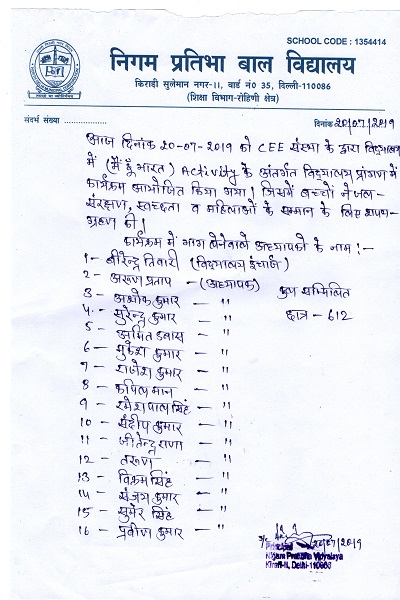 SCHOOL CODE : 1354414
निगम प्रतिभा बाल विद्यालय
किराड़ी सुलेमान नगर-II, वार्ड नं0 35, दिल्ली-110086
(शिक्षा विभाग-रोहिणी क्षेत्र)
संदर्भ संख्या ..................
दिनांक 20/07/2019
आज दिनांक 20-07-2019 को CEE संस्था के द्वारा विद्यालय
में (मैं हूँ भारत) Activity के अंतर्गत विद्यालय प्रांगण में
कार्यक्रम आयोजित किया गया। जिसमें बच्चों ने जल-
संरक्षण, स्वच्छता व महिलाओं के सम्मान के लिए शपथ-
ग्रहण की।
कार्यक्रम में भाग लेनेवाले अध्यापकों के नाम :-
1- बीरेन्द्र तिवारी (विद्यालय इंचार्ज)
2- अरूण प्रताप - (अध्यापक)
3- अशोक कुमार - "
4- सुरेन्द्र कुमार - "
5- अमित डबास - "
6- मुकेश कुमार - "
7- राजेश कुमार - "
8- कपिल मान - "
9- रमेश पाल सिंह - "
10- संदीप कुमार - "
11- जीतेन्द्र राणा - "
12- तरूण - "
13- विक्रम सिंह - "
14- संजय कुमार - "
15- सुमेर सिंह - "
16- प्रवीण कुमार - "
कुल सम्मिलित
छात्र - 612
20/07/2019
Principal
Nigam Pratibha Vidyalaya
Kirari-II, Delhi-110086